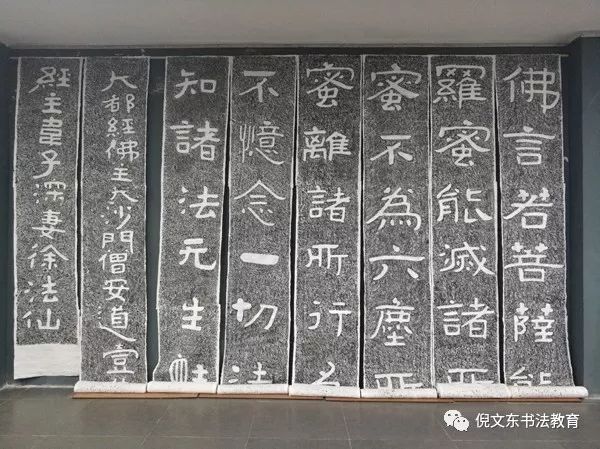 佛言若菩薩能
羅蜜能滅諸
蜜不為六塵所
蜜離諸所行
不憶念一切法
知諸法元生
大都經佛主大沙門僧安道壹
經主韋子深妻徐法仙
倪文东书法教育